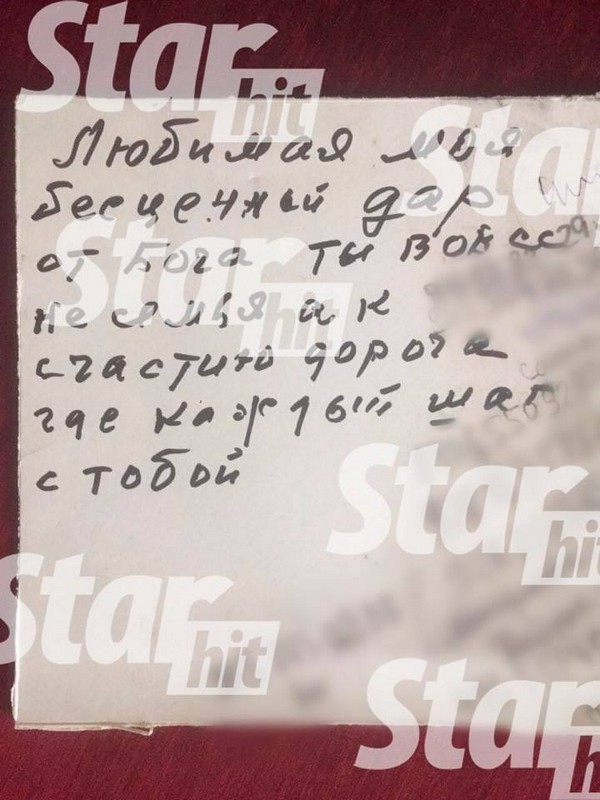 Star hit
Star
Любимая моя
бесценный дар
от Бога ты вовсе
не семья а к
Star hit
счастию дорога
где каждый шаг
с тобой
Star hit
Star hit
Star